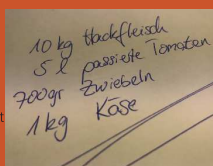 10 kg Hackfleisch
5 l passierte Tomaten
700gr Zwiebeln
1 kg Käse
t